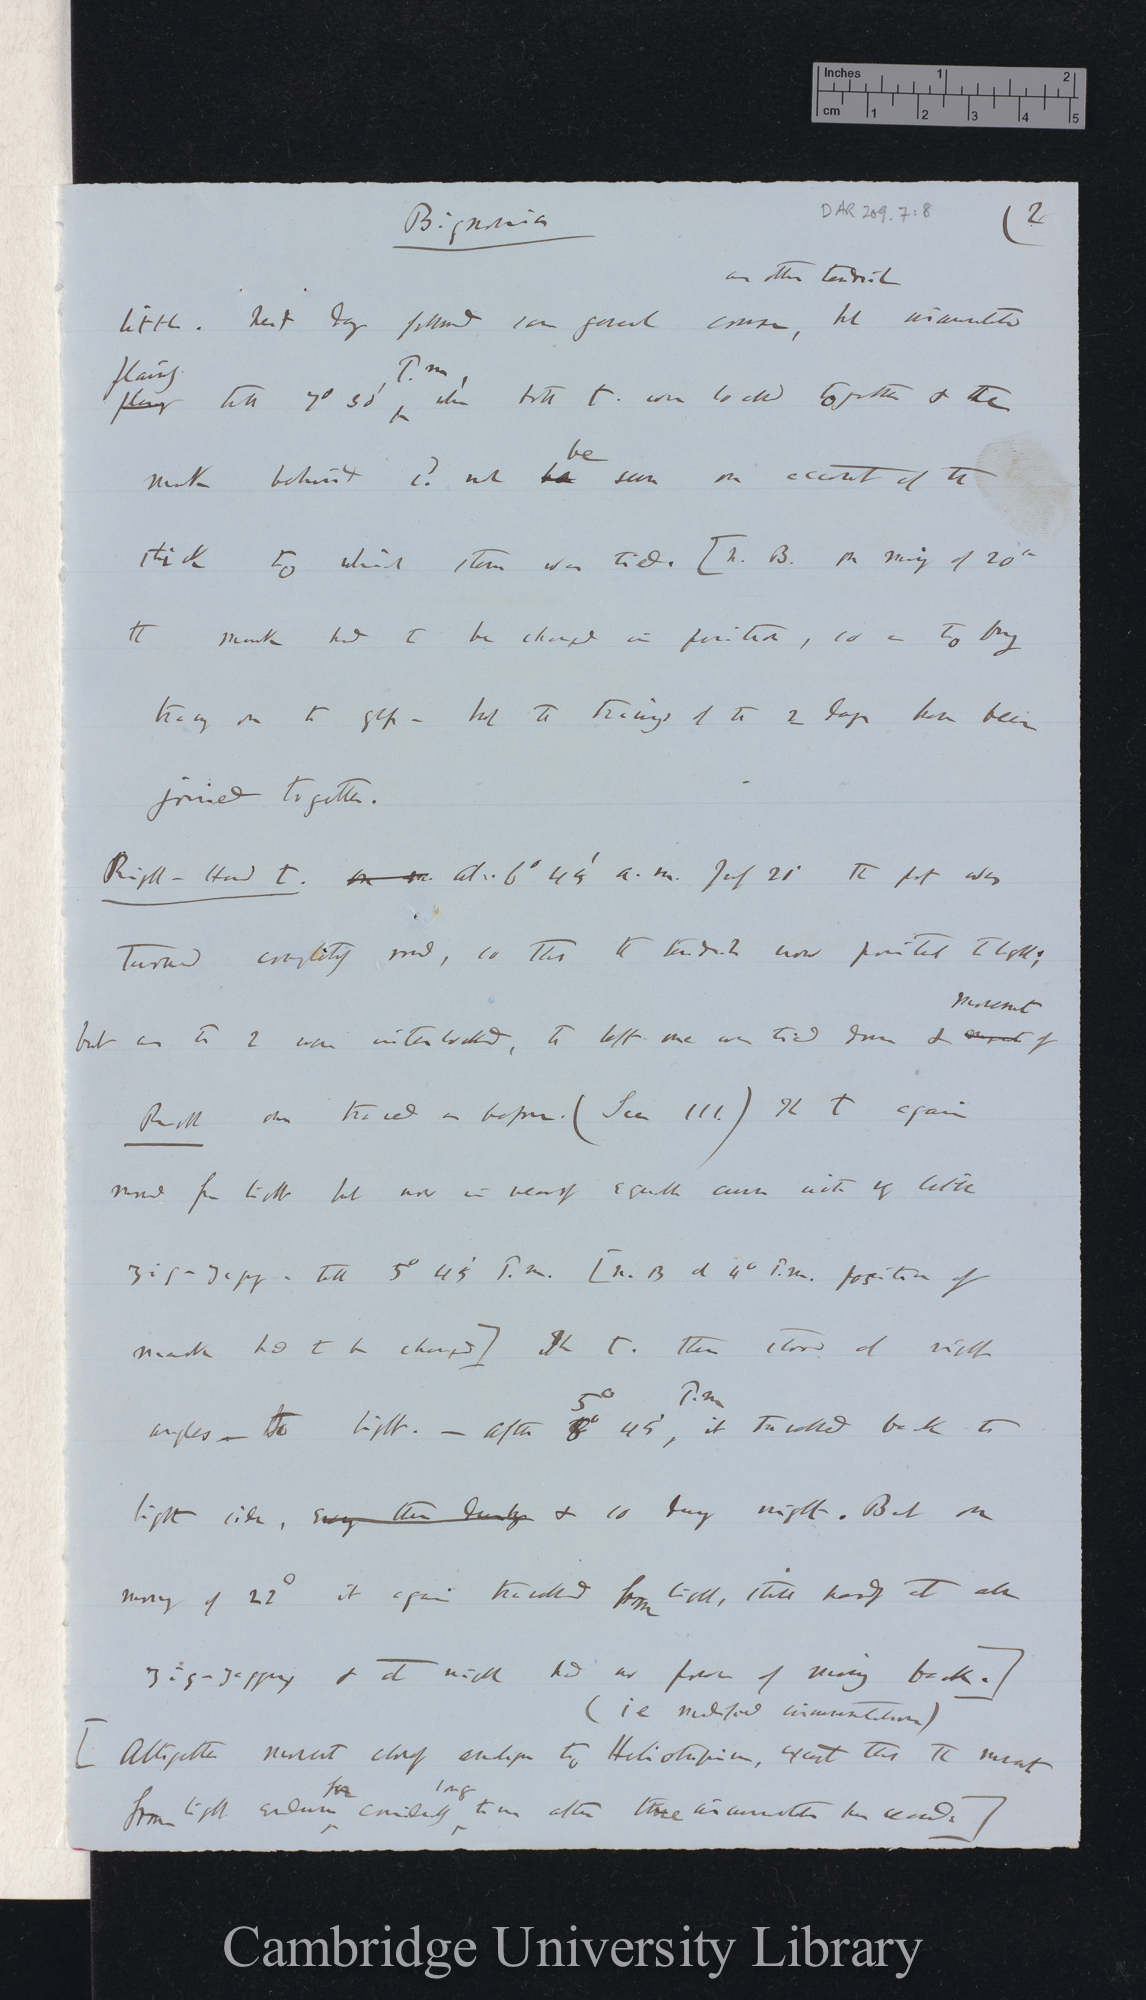 Inches 1 2
cm 1 2 3 4 5
Bignonia
DAR 209.7:8
(2
another tendril
little. Next day followed same general course, but circumnutation
plainly
till 7° 30' P.m, when both t. were locked together & the
mark behind cd not be seen on account of the
stick to which stem was tied. [N.B. on mng of 20th
the mark had to be changed in position, so as to bring
tracing on to glass – but the tracings of the 2 days have been
joined together.
Right-Hand t. At 6° 45' a.m. July 21 the pot was
turned completely round, so that the tendril now pointed to light;
but as the 2 were interlocked, the left one was tied down & movement of
Right one traced as before. (See III.) The t again
moved from light but now in nearly equable curve with very little
zig-zagging - till 5° 45' P.m. [N.B at 4° P.m. position of
mark had to be changed] The t. then stood at right
angles – to light. – After 5° 45' P.m, it travelled back to
light side, & so during night. But on
morning of 22° it again travelled from light, still hardly at all
zig-zagging & at night had no power of moving back.]
(ie modified circumnutation)
[Altogether movement closely analogous to Heliotropism, except that the movement
from light endures for considerably long time after true circumnutation has ceased.]
Cambridge University Library